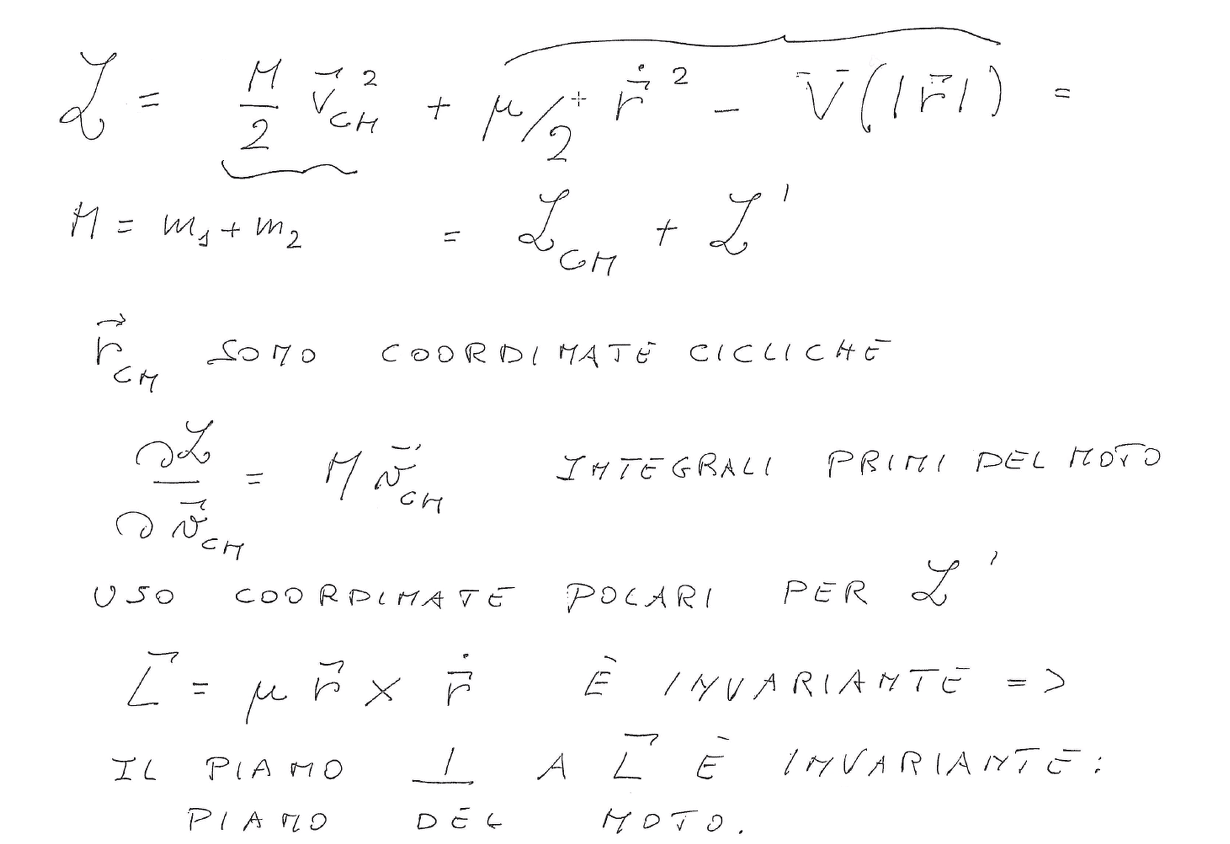 ℒ = M/2 v⃗_CM² + μ/2 ṙ⃗² − V(|r⃗|) =
M = m₁ + m₂ = ℒ_CM + ℒ'
r⃗_CM SONO COORDINATE CICLICHE
∂ℒ/∂v⃗_CM = M v⃗_CM INTEGRALI PRIMI DEL MOTO
USO COORDINATE POLARI PER ℒ'
L⃗ = μ r⃗ × ṙ⃗ È INVARIANTE =>
IL PIANO ⊥ A L⃗ È INVARIANTE:
PIANO DEL MOTO.